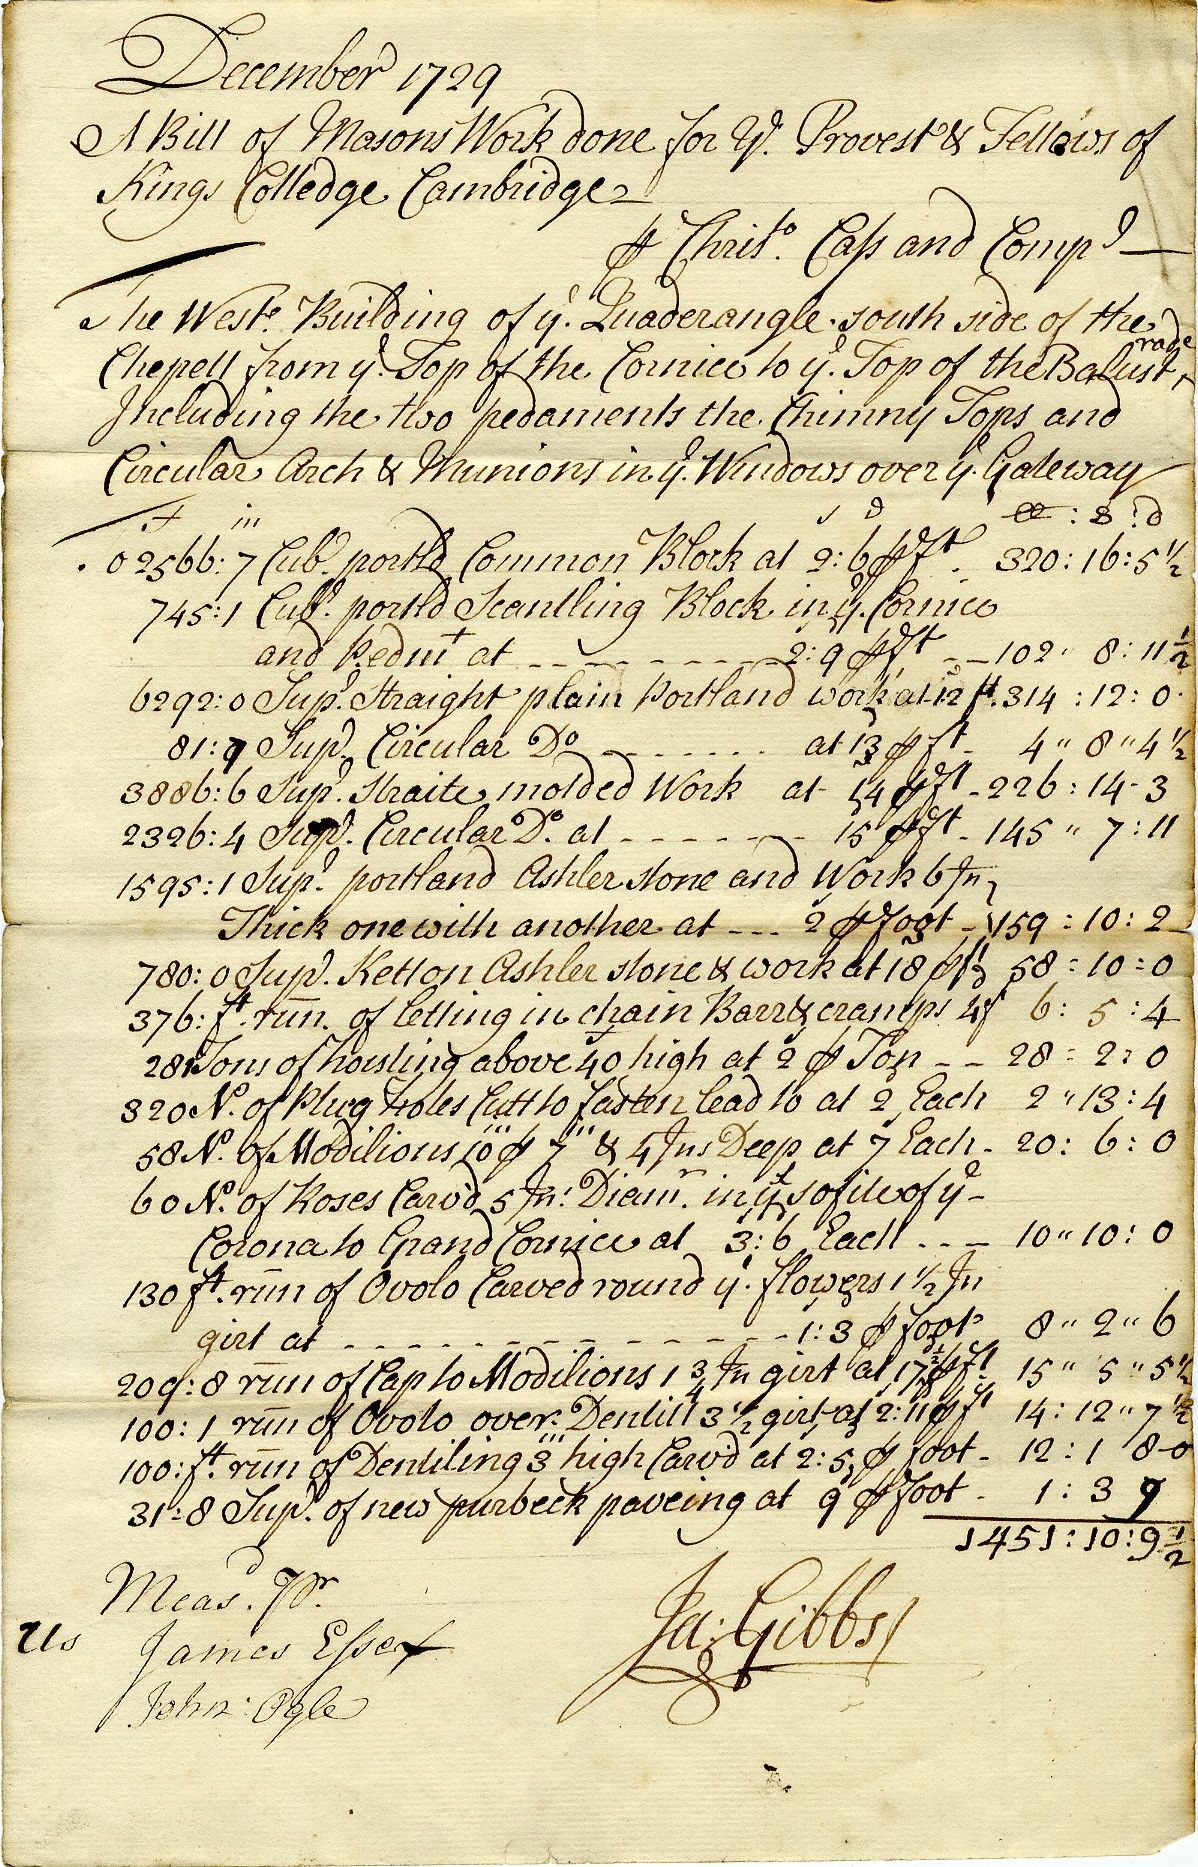 December 1729
A Bill of Masons Work done for Ye. Provest & Fellows of
Kings Colledge Cambridge
⅌ Christo. Cass and Compy
The West. Building of ye. Quaderangle south side of the
Chepell from ye. Top of the Cornice to ye. Top of the Balustrade
Including the two pedaments the Chimny Tops and
Circular Arch & Munions in ye. Windows over ye. Gateway
ft in s d £ : s : d
02566:7 Cub. portld Common Block at 2:6 ⅌ ft. 320:16:5½
745:1 Cub. portld Scantling Block in ye. Cornice
and Pedmt at 2:9 ⅌ ft 102" 8:11½
6292:0 Supl. Straight plain Portland work at 12 ⅌ ft. 314:12:0
81:9 Supl. Circular Do at 13 ⅌ ft 4" 8" 4½
3886:6 Supl. straite molded Work at 14 ⅌ ft 226:14-3
2326:4 Supl. Circular Do. at 15 ⅌ ft 145" 7:11
1595:1 Supl. portland Ashler stone and Work 6 In
Thick one with another at 2 ⅌ foot 159:10:2
780:0 Supl. Ketton Ashler stone & work at 18 ⅌ ft 58:10:0
376: ft. run. of letting in chain Barr & cramps 4 ⅌ 6:5:4
281 Tons of hoisting above 40 high at 2 ⅌ Ton 28:2:0
320 No. of Plug Holes Cutt to fasten lead to at 2 Each 2"13:4
58 No. of Modilions 10''' ⅌ 7''' & 4 Ins Deep at 7 Each 20:6:0
60 No. of Roses Carv'd 5 In: Diamr. in ye sofite of ye
Corona to Grand Cornice at 3:6 Each 10"10:0
130 ft. run of Ovolo Carved round ye. flowers 1½ In
girt at 1:3 ⅌ foot 8"2"6
209:8 run of Cap to Modilions 1¾ In girt at 17½ ⅌ ft 15"5"5½
100:1 run of Ovolo over Dentill 3½ girt at 2:11 ⅌ ft 14:12"7½
100: ft. run of Dentiling 3''' high Carv'd at 2:5 ⅌ foot 12:1 8-0
31:8 Supl. of new purbeck paveing at 9 ⅌ foot 1:3 9
1451:10:9½
Measd. Pr.
Us James Essex
John: Ogle
Ja: Gibbs